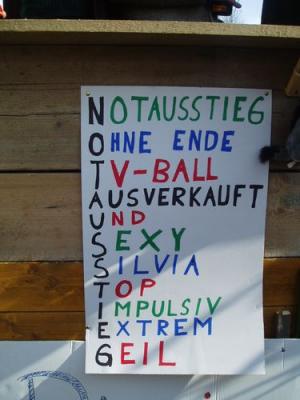 NOTAUSSTIEG
OHNE ENDE
TV-BALL
AUSVERKAUFT
UND
SEXY
SILVIA
TOP
IMPULSIV
EXTREM
GEIL